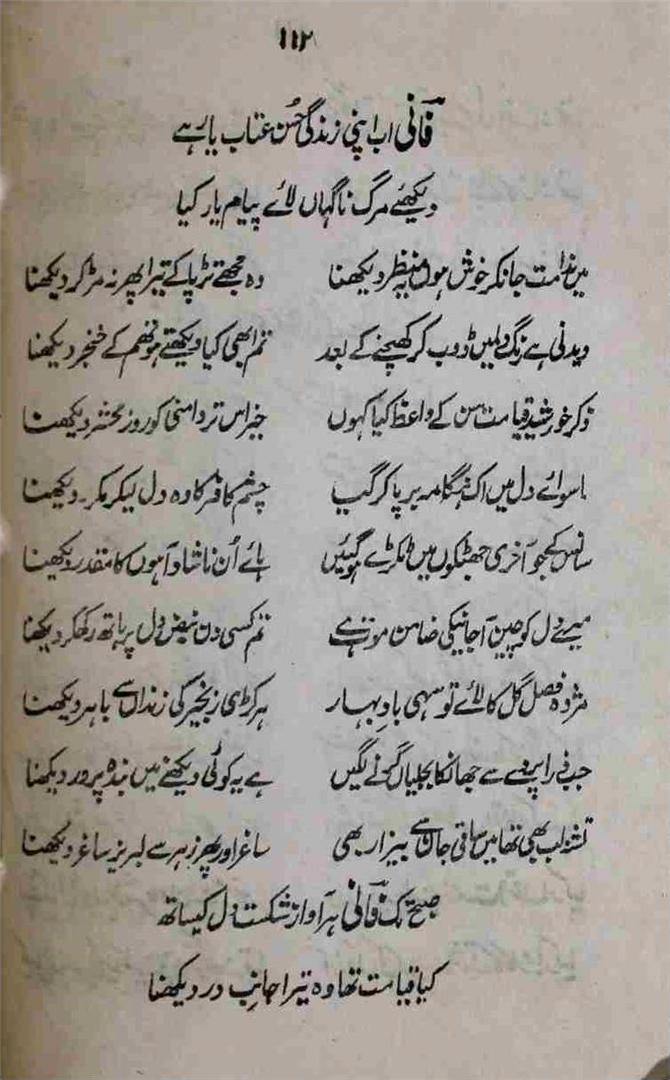 ۱۱۲
فانیؔ اب اپنی زندگی حُسن عتاب یار ہے
دیکھئے مرگ ناگہاں لائے پیام یار کیا
میں ندامت جانکر خوش ہوں یہ منظر دیکھنا وہ مجھے تڑپا کے تیرا پھر نہ مڑ کر دیکھنا
دیدنی ہے رنگ دلمیں ڈوب کر کھچنے کے بعد تم ابھی کیا دیکھتے ہو تھم کے خنجر دیکھنا
ذکر خورشید قیامت سن کے واعظ کیا کہوں خیر اس تر دامنی کو روز محشر دیکھنا
ماسوائے دل میں اک ہنگامہ برپا کر گیا چشم کافر کا وہ دل لیکر مکرر دیکھنا
سانس کچھ آخری جھٹکوں میں ٹکڑے ہو گئیں ہائے اُن ناشاد آہوں کا مقدر دیکھنا
میرے دل کو چین آجانیکی ضامن موت ہے تم کسی دن نبض دل پر ہاتھ رکھکر دیکھنا
مژدہ فصل گل کا لائے تو سہی بادِ بہار ہر کڑی زنجیر کی زنداں سے باہر دیکھنا
جب ذرا پردے سے جھانکا بجلیاں گرنے لگیں ہے یہ کوئی دیکھنے میں بندہ پرور دیکھنا
تشنہ لب بھی تھا میں ساقی جان سے بیزار بھی ساغر اور پھر زہر سے لبریز ساغر دیکھنا
صبح تک فانیؔ ہر آواز شکست دل کیساتھ
کیا قیامت تھا وہ تیرا جانبِ در دیکھنا